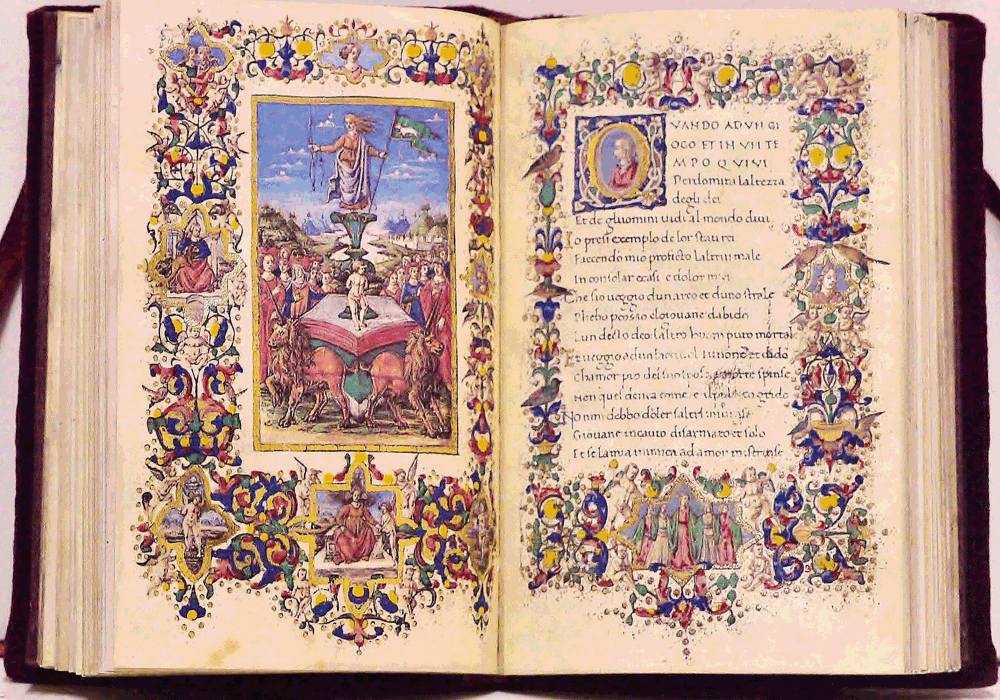 QVANDO AD VN GI
OGO ET IN VN TE
MPO QVIVI
Perdomita laltezza
degli dei
Et de gluomini vidi al mondo diui
Io presi exemplo de lor stati rei
Faccendo mio proficto laltrui male
In consolar casi e dolor miei
Che sio ueggio dun arco et duno strale
Phebo percosso elgiouane dabido
Lun decto deo laltro huom puro mortal
Et ueggo ad un lacciuol Iunone et dido
Chamor pio del suo sposo a morte spinse
Non quel denea come
Non mi debbo doler saltri mi
Giouane incauto disarmato et solo
Et se la mia nimica ad amor mi strinse